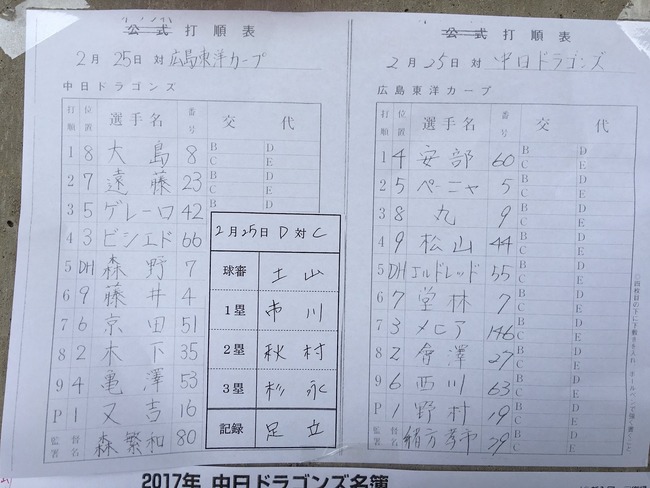 オープン戦
公式打順表
2月25日対広島東洋カープ
中日ドラゴンズ
打順 位置 選手名 番号 交代
1 8 大島 8 B D C E
2 7 遠藤 23 B D C E
3 5 ゲレーロ 42
4 3 ビシエド 66
5 DH 森野 7
6 9 藤井 4
7 6 京田 51
8 2 木下 35
9 4 亀澤 53
P 1 又吉 16
監督 署名 森繁和 80
2月25日 D 対 C
球審 土山
1塁 市川
2塁 秋村
3塁 杉永
記録 足立
公式打順表
2月25日対中日ドラゴンズ
広島東洋カープ
打順 位置 選手名 番号 交代
1 4 安部 60 B D C E
2 5 ペーニャ 5 B D C E
3 8 丸 9 B D C E
4 9 松山 44 B D C E
5 DH エルドレッド 55 B D C E
6 7 堂林 7 B D C E
7 3 メヒア 146 B D C E
8 2 會澤 27 B D C E
9 6 西川 63 B D C E
P 1 野村 19 B D C E
監督 署名 緒方孝市 79
2017年 中日ドラゴンズ名簿